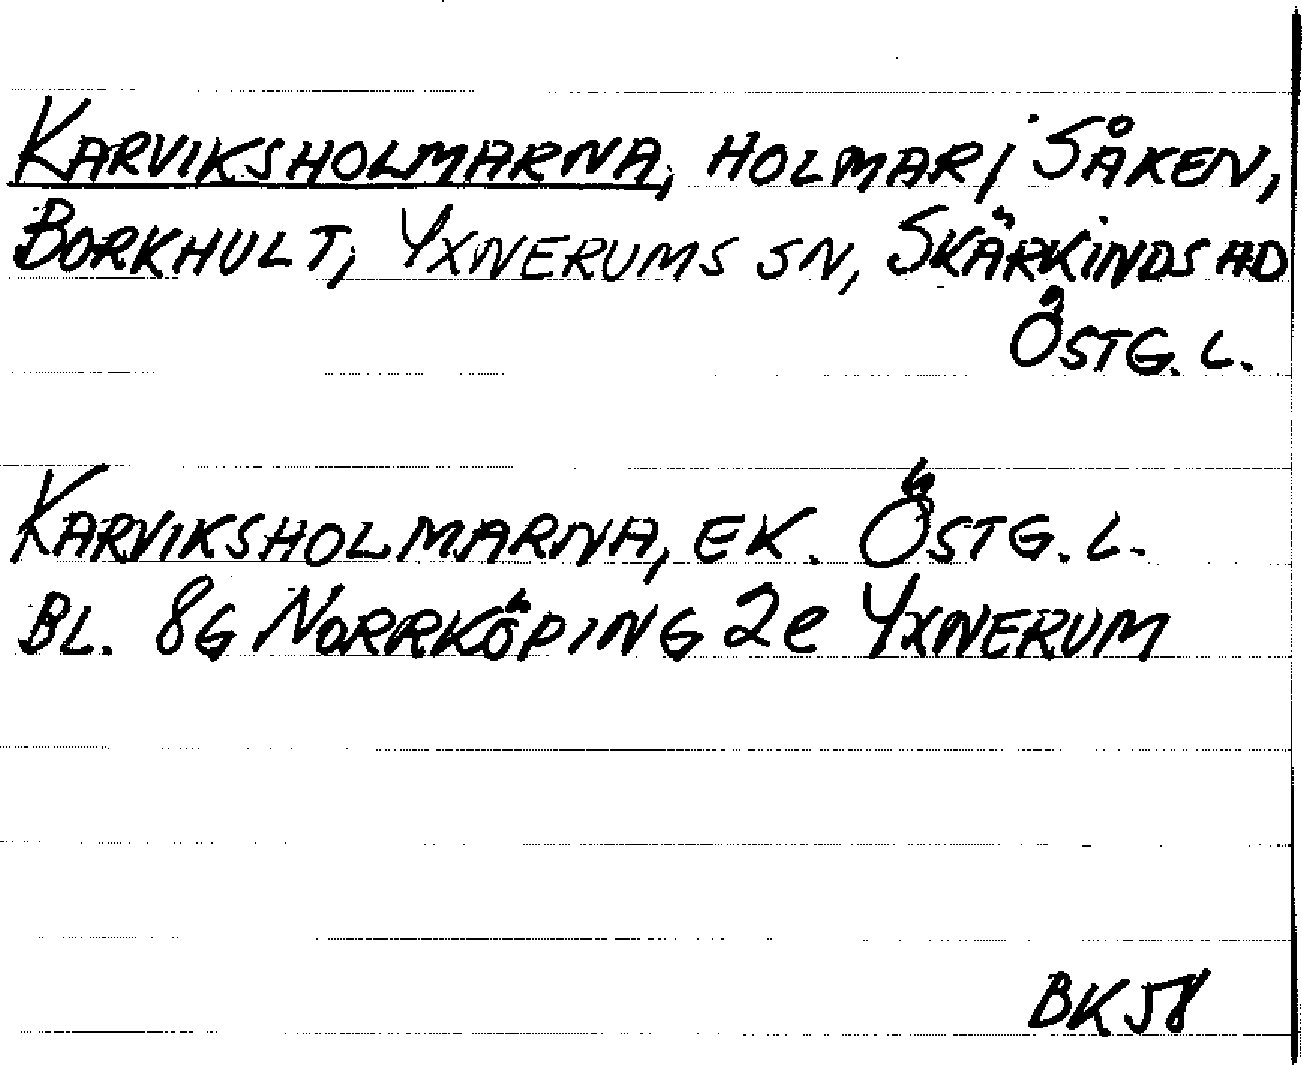 KARVIKSHOLMARNA, HOLMAR I SÅKEN,
BORKHULT, YXNERUMS SN, SKÄRKINDS HD
ÖSTG. L.
KARVIKSHOLMARNA, EK. ÖSTG. L.
BL. 8G NORRKÖPING 2e YXNERUM
BK 58